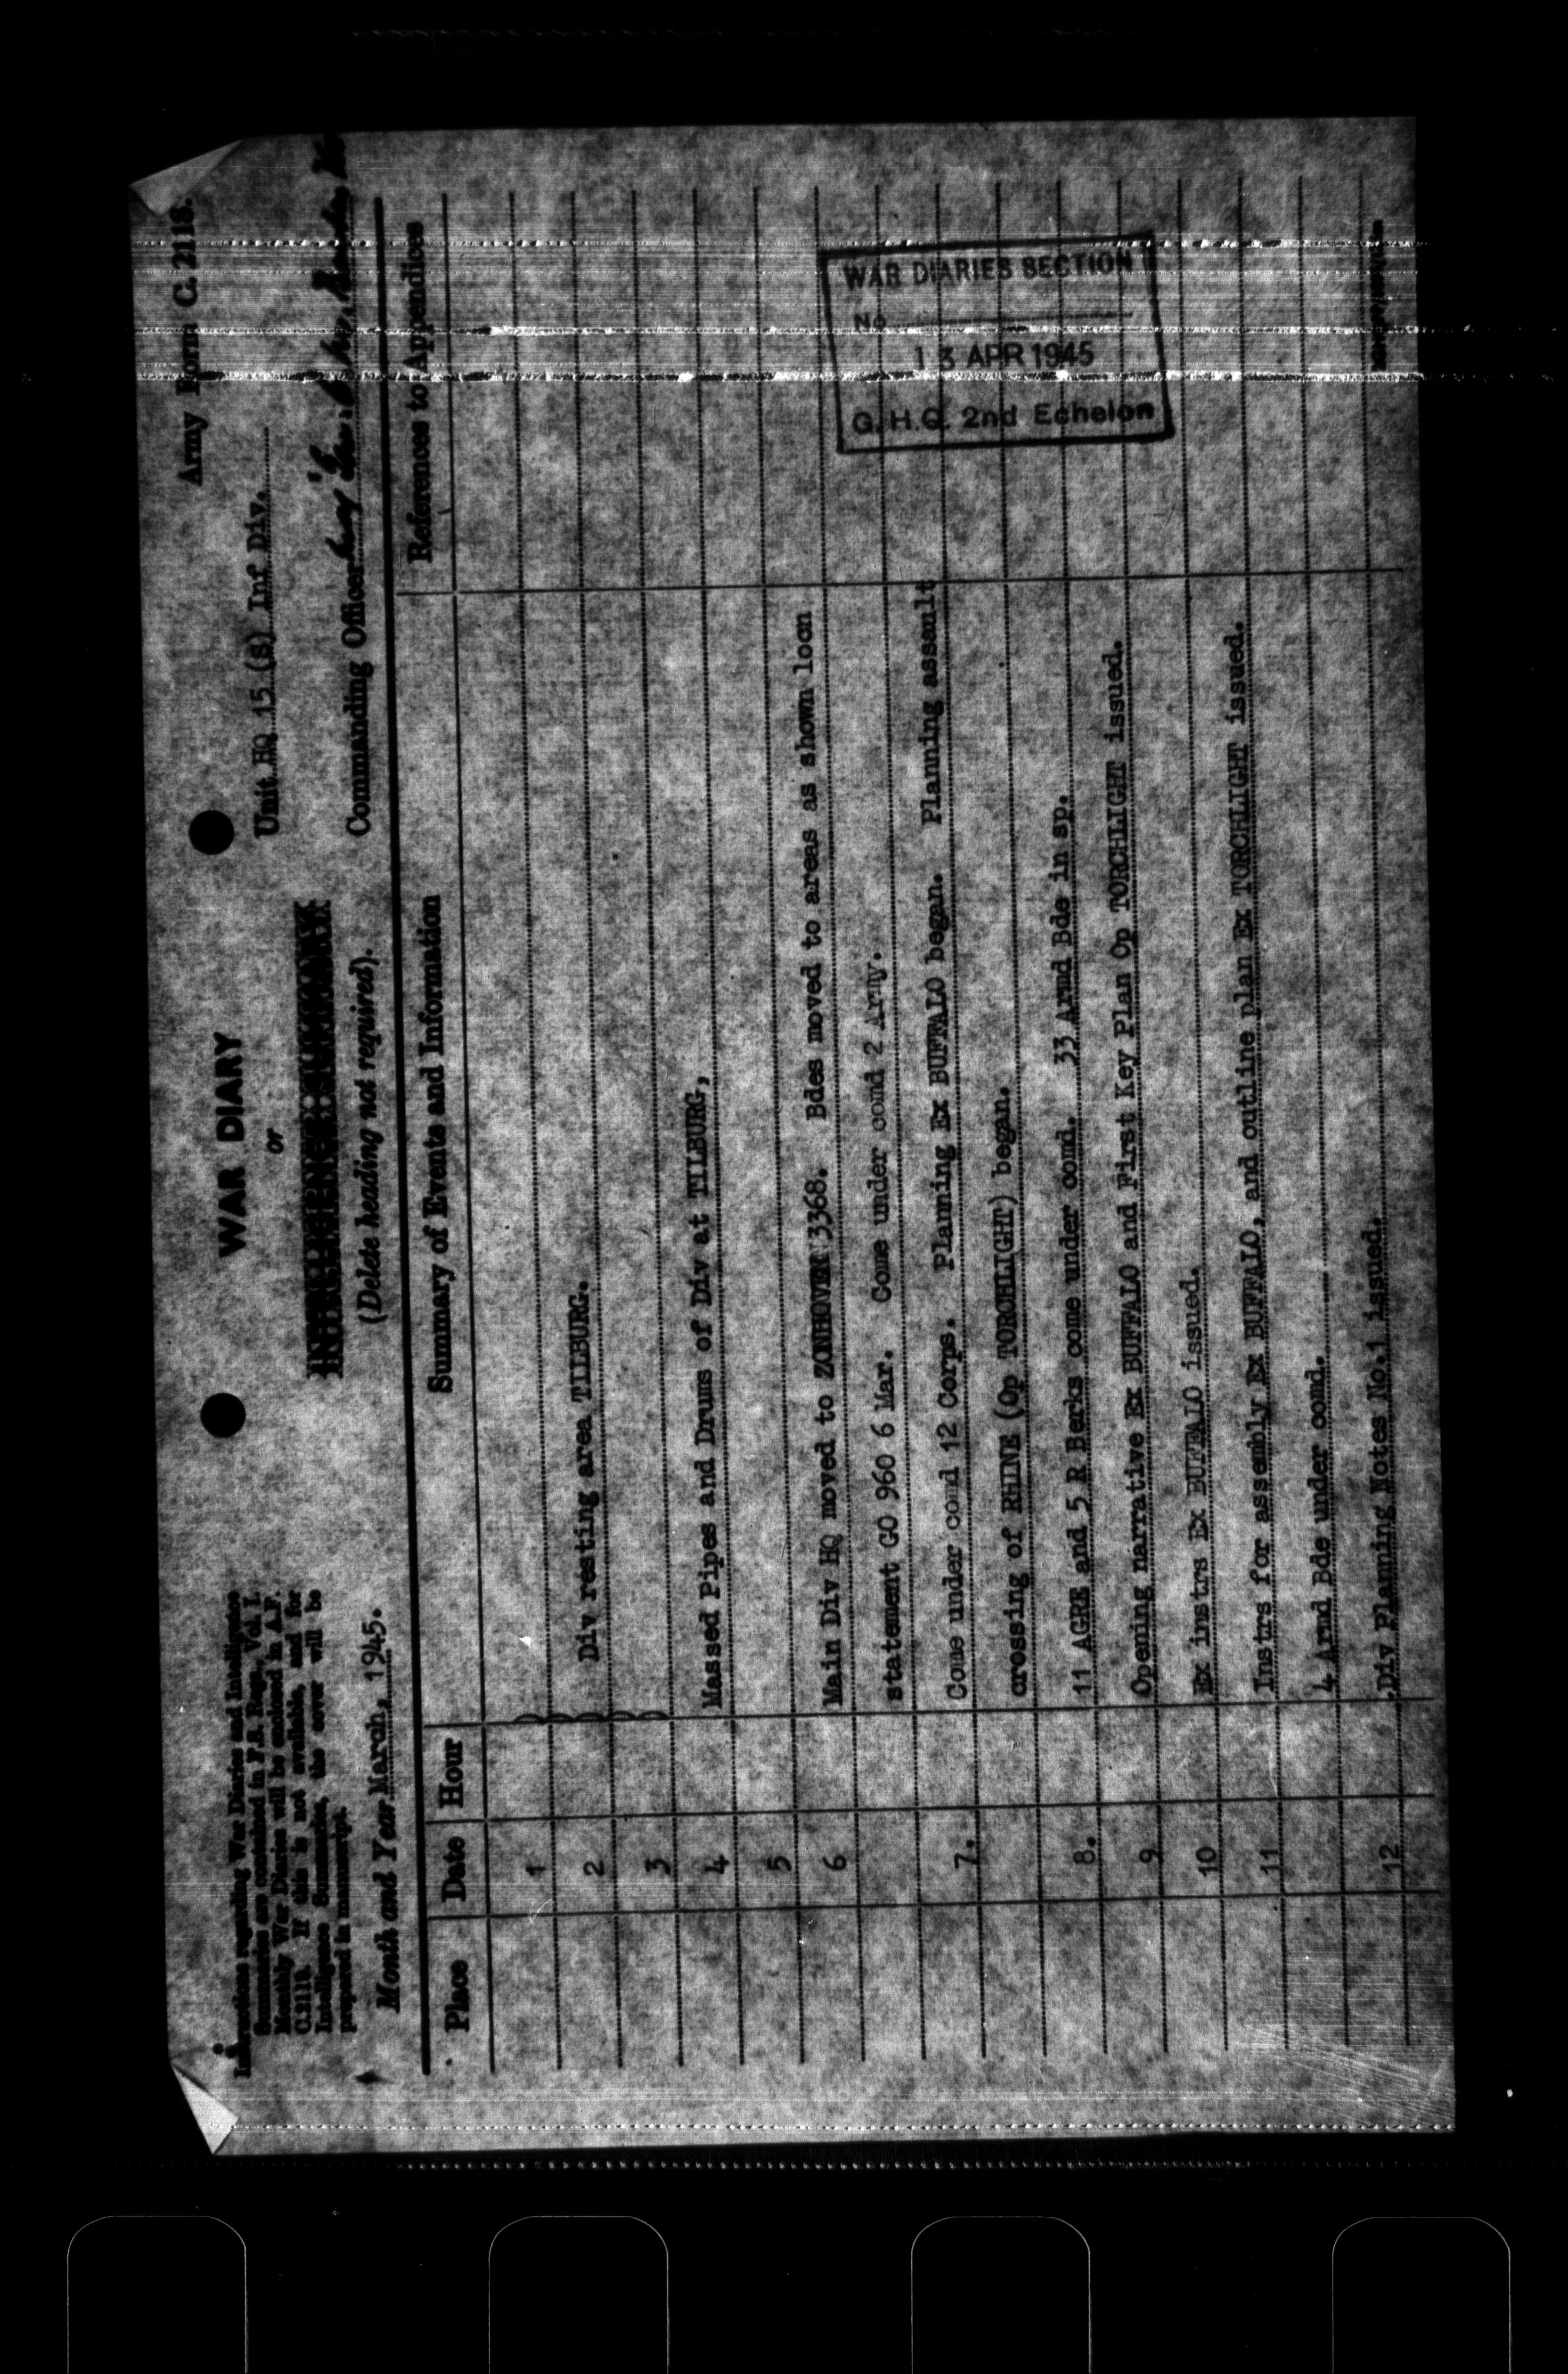 Army Form C. 2118.
WAR DIARY
or
INTELLIGENCE SUMMARY
(Delete heading not required).
Instructions regarding War Diaries and Intelligence
Summaries are contained in F.S. Regs., Vol. I.
Monthly War Diaries will be enclosed in A.F.
C.2118. If this is not available, and for
Intelligence Summaries, the cover will be
prepared in manuscript.
Month and Year March, 1945.
Unit HQ 15 (S) Inf Div.
Commanding Officer
Place Date Hour Summary of Events and Information References to Appendices
1 )
2 ) Div resting area TILBURG.
3 )
4 Massed Pipes and Drums of Div at TILBURG,
5
6 Main Div HQ moved to ZONHOVEN 3368. Bdes moved to areas as shown locn
statement GO 960 6 Mar. Come under comd 2 Army.
7. Come under comd 12 Corps. Planning Ex BUFFALO began. Planning assault
crossing of RHINE (Op TORCHLIGHT) began.
8. 11 AGRE and 5 R Berks come under comd. 33 Armd Bde in sp.
9 Opening narrative Ex BUFFALO and First Key Plan Op TORCHLIGHT issued.
10 Ex instrs Ex BUFFALO issued.
11 Instrs for assembly Ex BUFFALO, and outline plan Ex TORCHLIGHT issued.
4 Armd Bde under comd.
12 Div Planning Notes No.1 issued.
WAR DIARIES SECTION
No
13 APR 1945
G.H.Q. 2nd Echelon